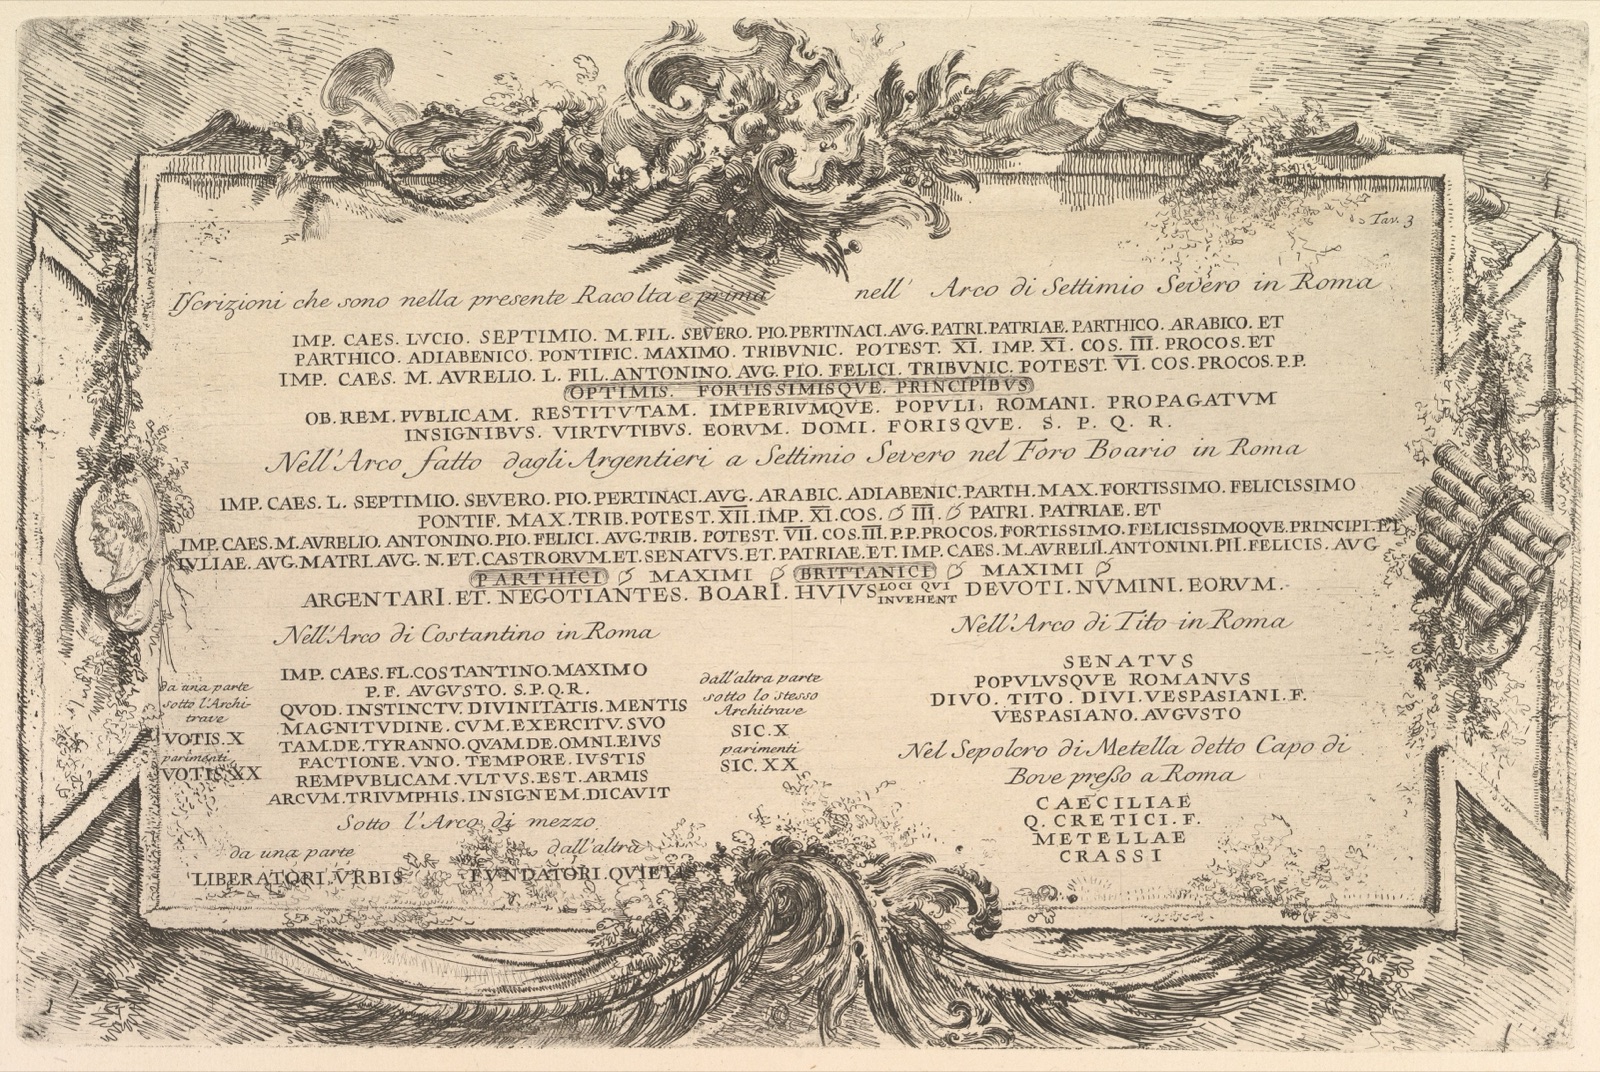 Tav. 3
Iscrizioni che sono nella presente Racolta e prima nell' Arco di Settimio Severo in Roma
IMP. CAES. LVCIO. SEPTIMIO. M. FIL. SEVERO. PIO. PERTINACI. AVG. PATRI. PATRIAE. PARTHICO. ARABICO. ET
PARTHICO. ADIABENICO. PONTIFIC. MAXIMO. TRIBVNIC. POTEST. XI. IMP. XI. COS. III. PROCOS. ET
IMP. CAES. M. AVRELIO. L. FIL. ANTONINO. AVG. PIO. FELICI. TRIBVNIC. POTEST. VI. COS. PROCOS. P. P.
OPTIMIS. FORTISSIMISQVE. PRINCIPIBVS
OB. REM. PVBLICAM. RESTITVTAM. IMPERIVMQVE. POPVLI. ROMANI. PROPAGATVM
INSIGNIBVS. VIRTVTIBVS. EORVM. DOMI. FORISQVE. S. P. Q. R.
Nell'Arco fatto dagli Argentieri a Settimio Severo nel Foro Boario in Roma
IMP. CAES. L. SEPTIMIO. SEVERO. PIO. PERTINACI. AVG. ARABIC. ADIABENIC. PARTH. MAX. FORTISSIMO. FELICISSIMO
PONTIF. MAX. TRIB. POTEST. XII. IMP. XI. COS. III. PATRI. PATRIAE. ET
IMP. CAES. M. AVRELIO. ANTONINO. PIO. FELICI. AVG. TRIB. POTEST. VII. COS. III. P. P. PROCOS. FORTISSIMO. FELICISSIMOQVE. PRINCIPI. ET
IVLIAE. AVG. MATRI. AVG. N. ET. CASTRORVM. ET. SENATVS. ET. PATRIAE. ET. IMP. CAES. M. AVRELII. ANTONINI. PII. FELICIS. AVG
PARTHICI MAXIMI BRITTANICI MAXIMI
ARGENTARI. ET. NEGOTIANTES. BOARI. HVIVS LOCI QVI INVEHENT DEVOTI. NVMINI. EORVM.
Nell'Arco di Costantino in Roma
da una parte
sotto l'Archi-
trave
VOTIS. X
parimenti
VOTIS. XX
IMP. CAES. FL. COSTANTINO. MAXIMO
P. F. AVGVSTO. S. P. Q. R.
QVOD. INSTINCTV. DIVINITATIS. MENTIS
MAGNITVDINE. CVM. EXERCITV. SVO
TAM. DE. TYRANNO. QVAM. DE. OMNI. EIVS
FACTIONE. VNO. TEMPORE. IVSTIS
REMPVBLICAM. VLTVS. EST. ARMIS
ARCVM. TRIVMPHIS. INSIGNEM. DICAVIT
dall'altra parte
sotto lo stesso
Architrave
SIC. X
parimenti
SIC. XX
Sotto l'Arco di mezzo
da una parte
LIBERATORI. VRBIS
dall'altra
FVNDATORI. QVIETIS
Nell'Arco di Tito in Roma
SENATVS
POPVLVSQVE ROMANVS
DIVO. TITO. DIVI. VESPASIANI. F.
VESPASIANO. AVGVSTO
Nel Sepolcro di Metella detto Capo di
Bove presso a Roma
CAECILIAE
Q. CRETICI. F.
METELLAE
CRASSI